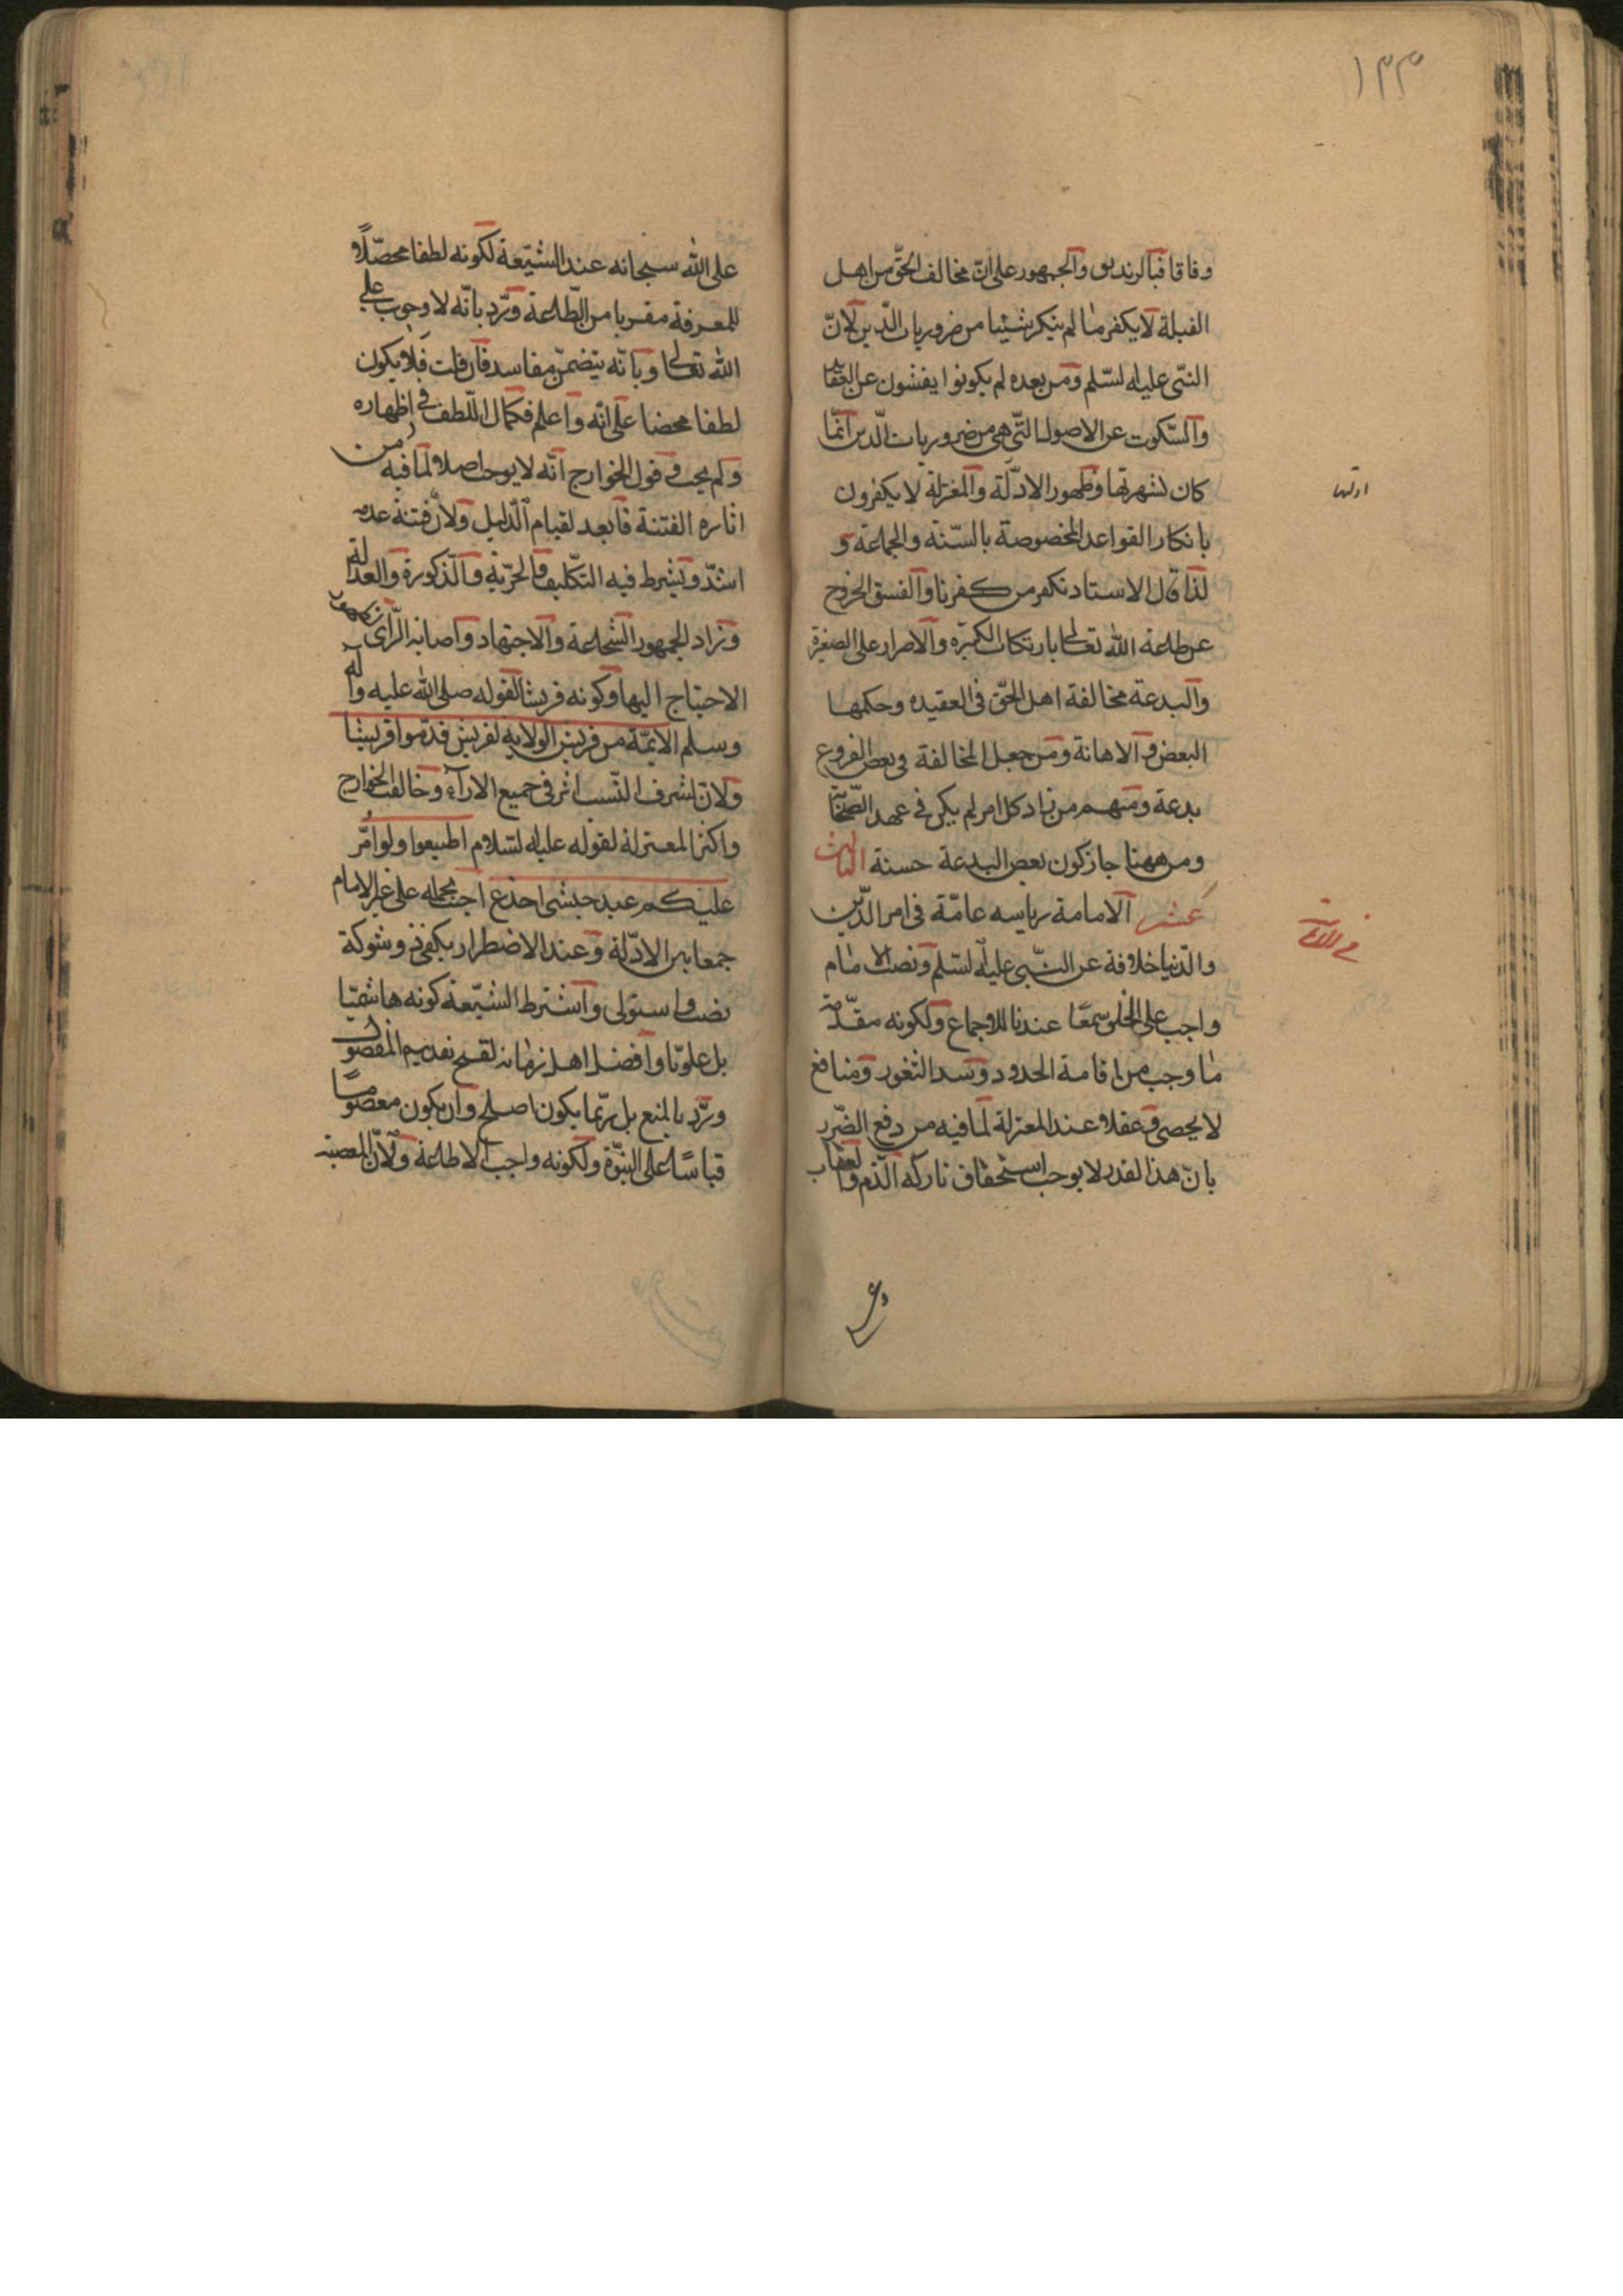 ١٣٣
وفاقا فبالزنديق والجمهور على انّ مخالف الحقّ من اهل
القبلة لا يكفر ما لم ينكر شيئا من ضروريات الدّين لانّ
النبّى عليه السّلم ومن بعده لم يكونوا يفتشون عن العقائد
والسّكوت عن الاصول التّى هى من ضروريات الدّين انمّا
كان لشهرتها وظهور الادّلة والمعتزلة لا يكفرون
ادلتها
بانكار القواعد المخصوصة بالسّنة والجماعة و
لذا قال الاستاد نكفر من كفرنا والفسق الخروج
عن طاعة الله تعالى بارتكاب الكبيرة والاصرار على الصغيرة
والبدعة مخالفة اهل الحقّ فى العقيده وحكمها
البغض والاهانة ومن جعل المخالفة فى بعض الفروع
بدعة ومنهم من زاد كل امر لم يكن فى عهد الصّحابة
ومن ههنا جاز كون بعض البدعة حسنة الثالث
عشر الامامة رياسه عامّة فى امر الدّين
والدّنيا خلافة عن النبّى عليه السّلم ونصب الامام
واجب على الخلق سمعًا عندنا للاجماع ولكونه مقدّمة
ما وجب من اقامة الحدود وسد الثغور ومنافع
لا يحصى وعقلا عند المعتزلة لما فيه من دفع الضّرر
بانّ هذا القدر لا يوجب استحقاق تاركه الذّم والعقاب
على الله سبحانه عند الشيّعة لكونه لطفا محصّلًا
للمعرفة مقربا من الطّاعة وردّ بانّه لا وجوب على
الله تعالى وبانّه يتضمّن مفاسد فان قلت فلا يكون
لطفا محضا على انّه واعلم فكمال اللّطف فى اظهاره
ولم يجب فى قول الخوارج انّه لا يوجب اصلا ولما فيه من
اثاره الفتنة فابعد لقيام الدّليل ولانّ فتنة عدمه
اشدّ ويشرط فيه التكليف والحرّية والذّكورة والعدالة
وزاد الجمهور الشّجاعة والاجتهاد واصابة الرّاى
الاحتياج اليها وكونه قريشا لقوله صلى الله عليه وآله
وسلم الائمّة من قريش الولاية لقريش قدّموا قريشا
ولانّ لشرف النّسب اثر فى جميع الاراء وخالف الخوارج
واكثر المعتزلة لقوله عليه السّلام اطيعوا ولو امّر
عليكم عبد حبشى اجدع اجيب بحمله على غير الامام
جمعا بين الادّلة وعند الاضطرار يكفى ذو شوكة
نصب او استولى واشترط الشيّعة كونه هاشميّا
بل علويّا وافضل اهل زمانه لقبح تقديم المفضول
وردّ بالمنع بل ربّما يكون اصلح وان يكون معصومًا
قياسًا على النبّوة ولكونه واجب الاطاعة ولانّ المعصية